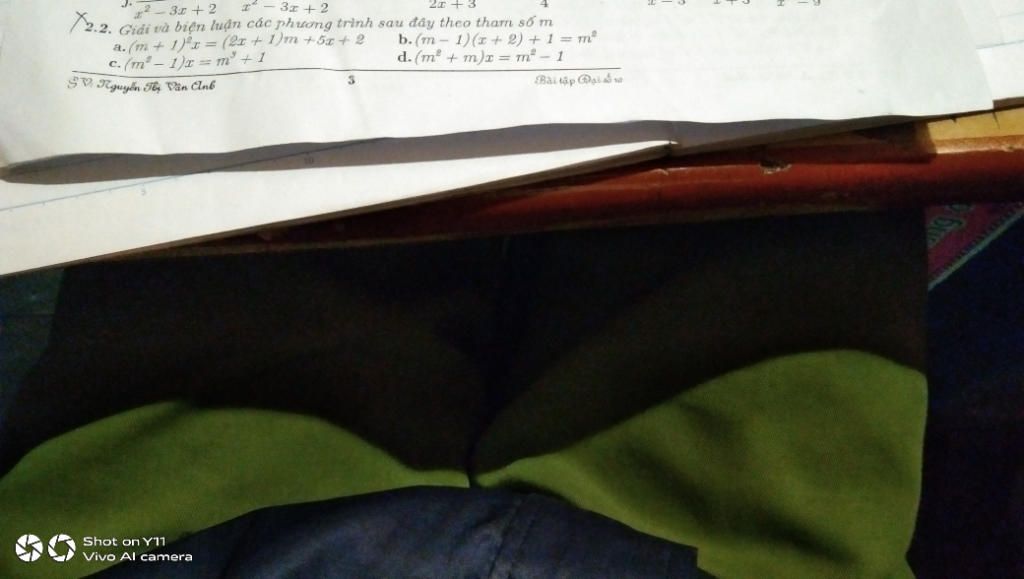 J. x² − 3x + 2 x² − 3x + 2 2x + 3 4
2.2. Giải và biện luận các phương trình sau đây theo tham số m
a. (m + 1)²x = (2x + 1)m +5x + 2 b. (m − 1)(x + 2) + 1 = m²
c. (m² − 1)x = m³ + 1 d. (m² + m)x = m² − 1
Nguyễn Thị Vân Anh 3 Bài tập Đại số 10
10
5
Shot on Y11
Vivo AI camera